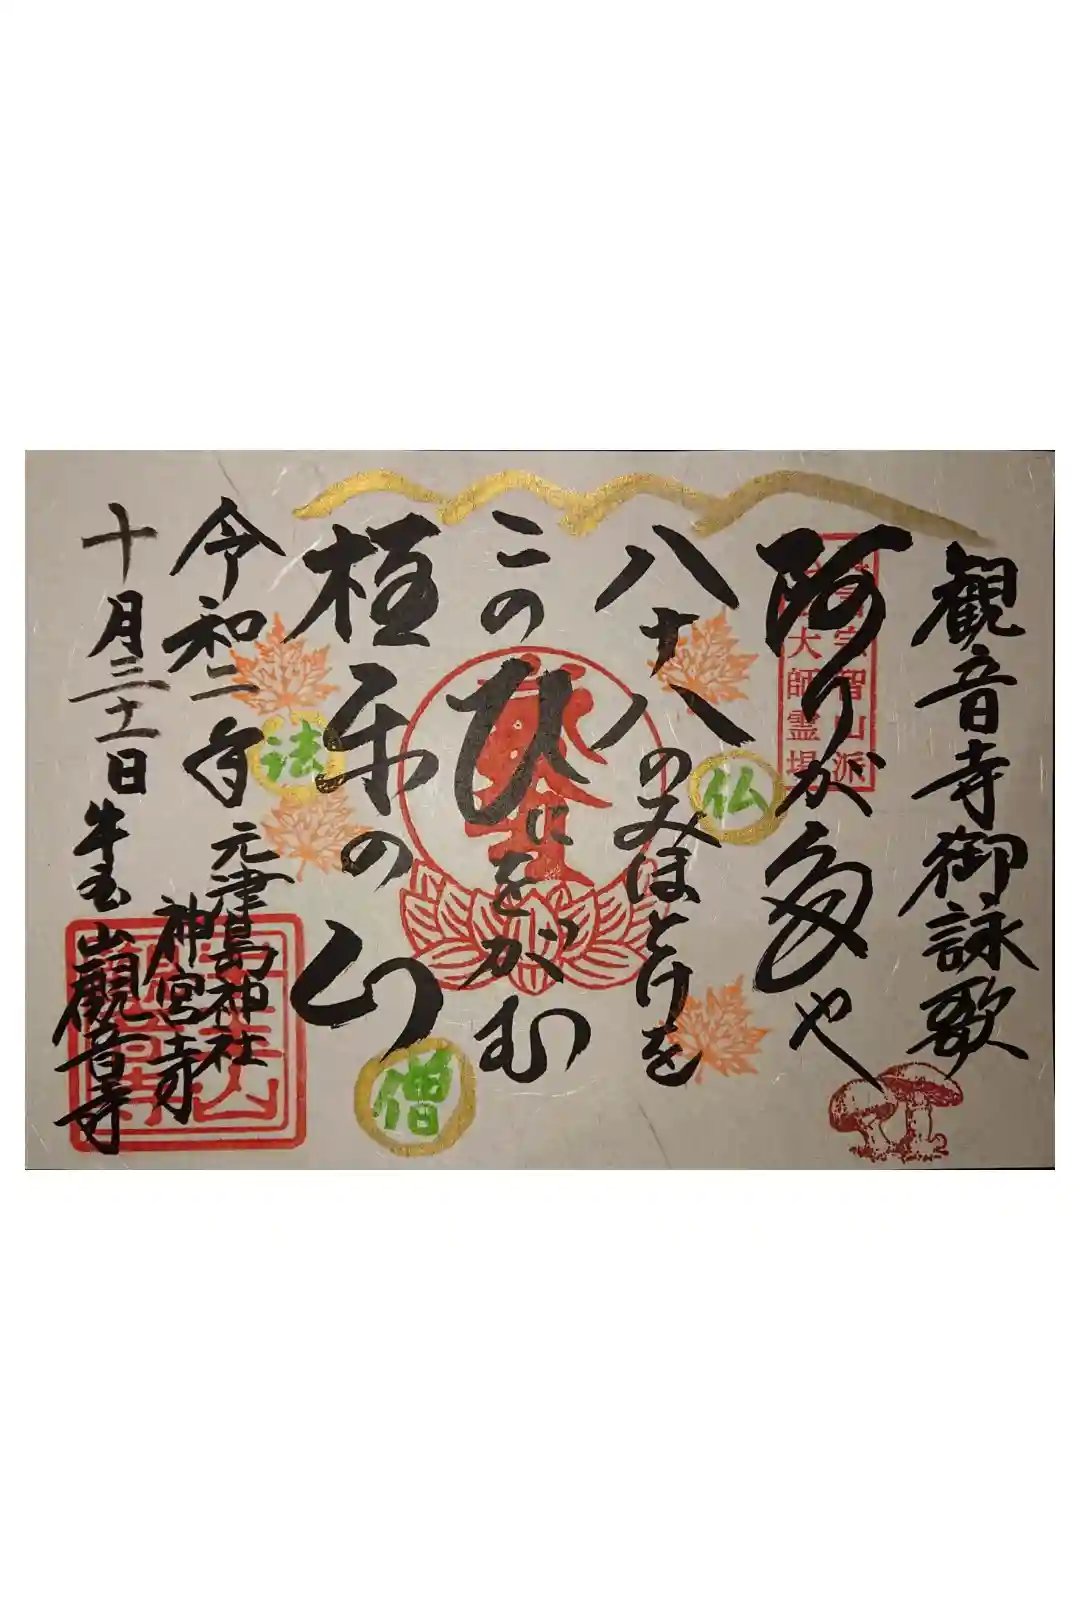 観音寺御詠歌
阿りが多や
八十八のみほとけを
二のひにをがむ
極楽の山
令和二年
十月三十一日
元津島神社
神宮寺
牛玉山觀音寺
大師霊場
智山派
仏
法
僧